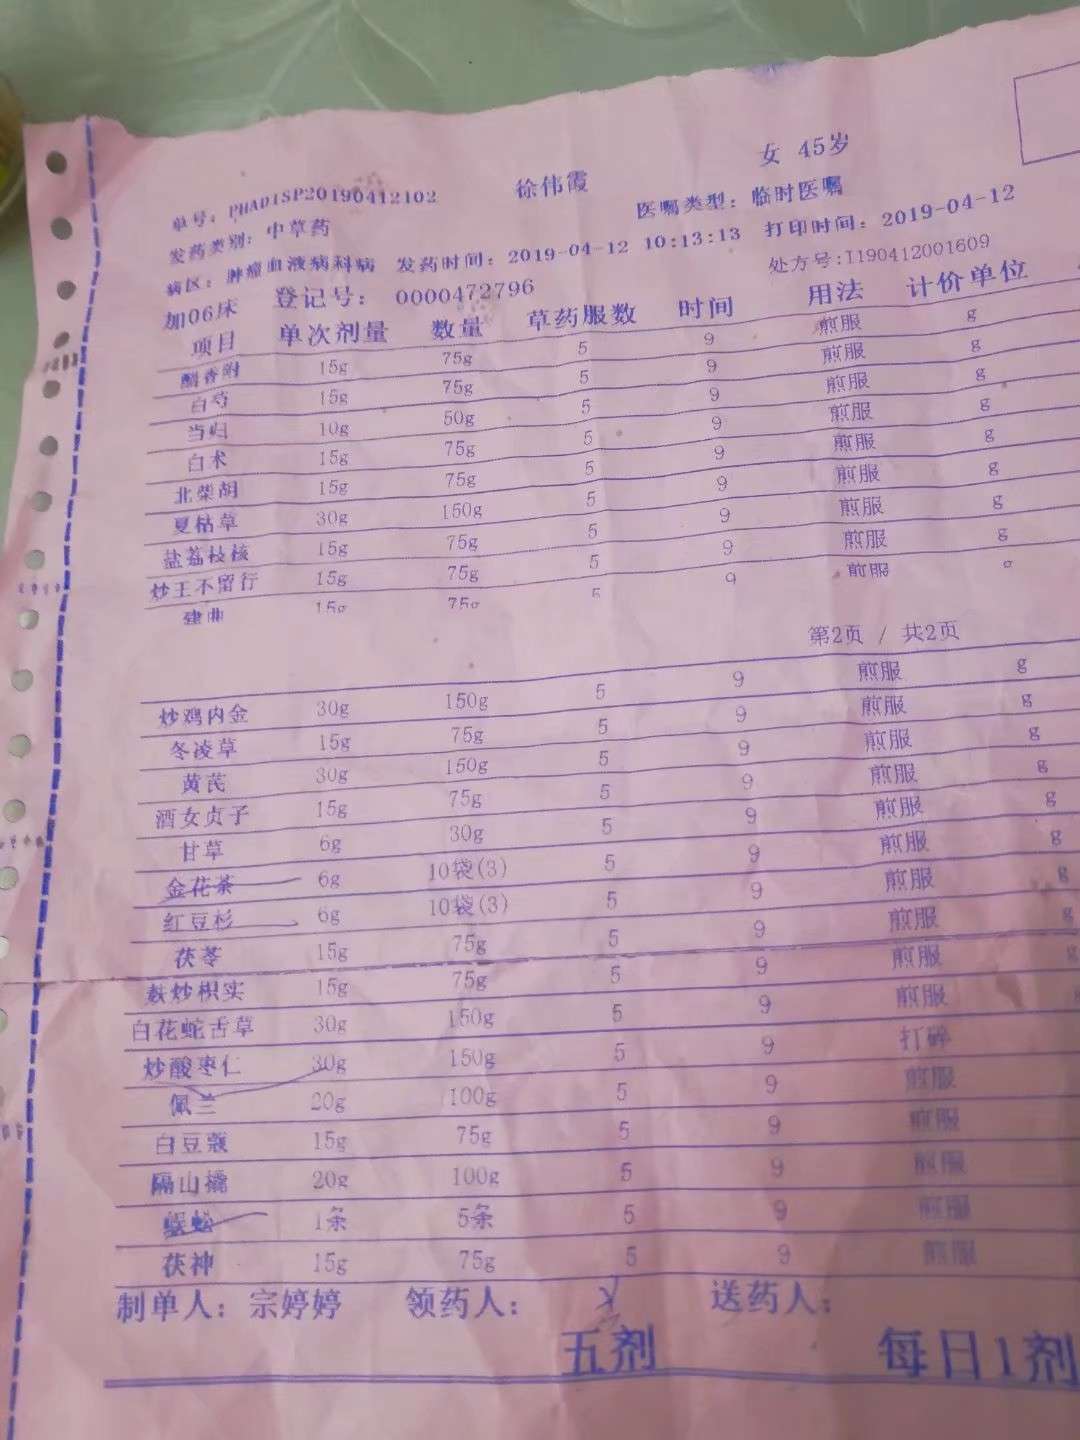 女 45岁
单号：PHADISP20190412102 徐伟霞 医嘱类型：临时医嘱
发药类别：中草药
病区：肿瘤血液病科病 发药时间：2019-04-12 10:13:13 打印时间：2019-04-12
加06床 登记号：0000472796 处方号:I190412001609
项目 单次剂量 数量 草药服数 时间 用法 计价单位
醋香附 15g 75g 5 9 煎服 g
白芍 15g 75g 5 9 煎服 g
当归 10g 50g 5 9 煎服 g
白术 15g 75g 5 9 煎服 g
北柴胡 15g 75g 5 9 煎服 g
夏枯草 30g 150g 5 9 煎服 g
盐荔枝核 15g 75g 5 9 煎服 g
炒王不留行 15g 75g 5 9 煎服 g
建曲 15g 75g 5 9 煎服 g
第2页 / 共2页
炒鸡内金 30g 150g 5 9 煎服 g
冬凌草 15g 75g 5 9 煎服 g
黄芪 30g 150g 5 9 煎服 g
酒女贞子 15g 75g 5 9 煎服 g
甘草 6g 30g 5 9 煎服 g
金花茶 6g 10袋(3) 5 9 煎服 g
红豆杉 6g 10袋(3) 5 9 煎服 g
茯苓 15g 75g 5 9 煎服 g
麸炒枳实 15g 75g 5 9 煎服 g
白花蛇舌草 30g 150g 5 9 煎服
炒酸枣仁 30g 150g 5 9 打碎
佩兰 20g 100g 5 9 煎服
白豆蔻 15g 75g 5 9 煎服
隔山撬 20g 100g 5 9 煎服
蜈蚣 1条 5条 5 9 煎服
茯神 15g 75g 5 9 煎服
制单人：宗婷婷 领药人： 送药人：
五剂 每日1剂